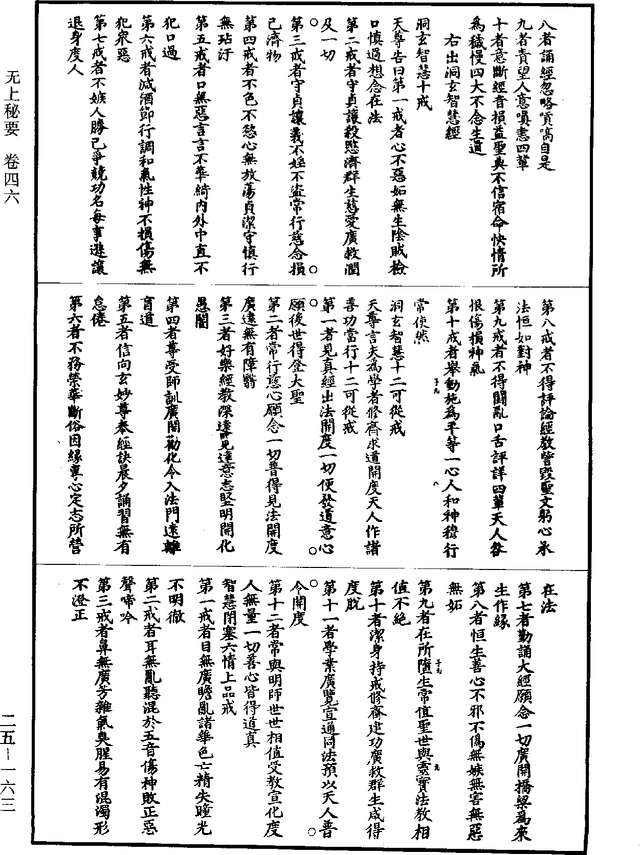 八者誦經忽略貢高自是
九者責望人意嗔恚四輩
十者意斷經音損益聖典不信宿命快情所
為穢慢四大不念生道
右出洞玄智慧經
洞玄智慧十戒
天尊告曰第一戒者心不惡妬無生陰賊檢
口慎過想念在法
第二戒者守貞讓殺愍濟群生慈愛廣救潤
及一切
第三戒者守貞讓義不婬不盜常行慈念損
己濟物
第四戒者不色不慾心無放蕩貞潔守慎行
無玷汙
第五戒者口無惡言言不華綺內外中直不
犯口過
第六戒者減酒節行調和氣性神不損傷無
犯眾惡
第七戒者不嫉人勝己爭競功名每事遜讓
退身度人
第八戒者不得評論經教訾毀聖文躬心承
法恒如對神
第九戒者不得鬭亂口舌評詳四輩天人咎
恨傷損神氣
第十戒者舉動施為平等一心人和神穆行
常使然
洞玄智慧十二可從戒
天尊言夫為學者修齋求道開度天人作諸
善功當行十二可從戒
第一者見真經出法開度一切便發道意心
願後世得登大聖
第二者常行慈心願念一切普得見法開度
廣遠無有障翳
第三者好樂經教深遠覽達意志堅明開化
愚闇
第四者尊受師訓廣開勸化令入法門遠離
盲道
第五者信向玄妙尊奉經訣晨夕誦習無有
怠倦
第六者不務榮華斷俗因緣專心定志所營
在法
第七者勤誦大經願念一切廣開橋梁為來
生作緣
第八者恒生善心不邪不偽無嫉無害無惡
無妬
第九者在所墮生常值聖世與靈寶法教相
值不絕
第十者潔身持戒修齋建功廣救群生咸得
度脫
第十一者學業廣覽宣通同法預以天人普
令開度
第十二者常與明師世世相值受教宣化度
人無量一切善心皆得道真
智慧閉塞六情上品戒
第一戒者目無廣瞻亂諸華色亡精失瞳光
不明徹
第二戒者耳無亂聽混於五音傷神敗正惡
聲啼吟
第三戒者鼻無廣芳雜氣臭腥易有混濁形
不澄正
无上秘要 卷四六
二五－一六三